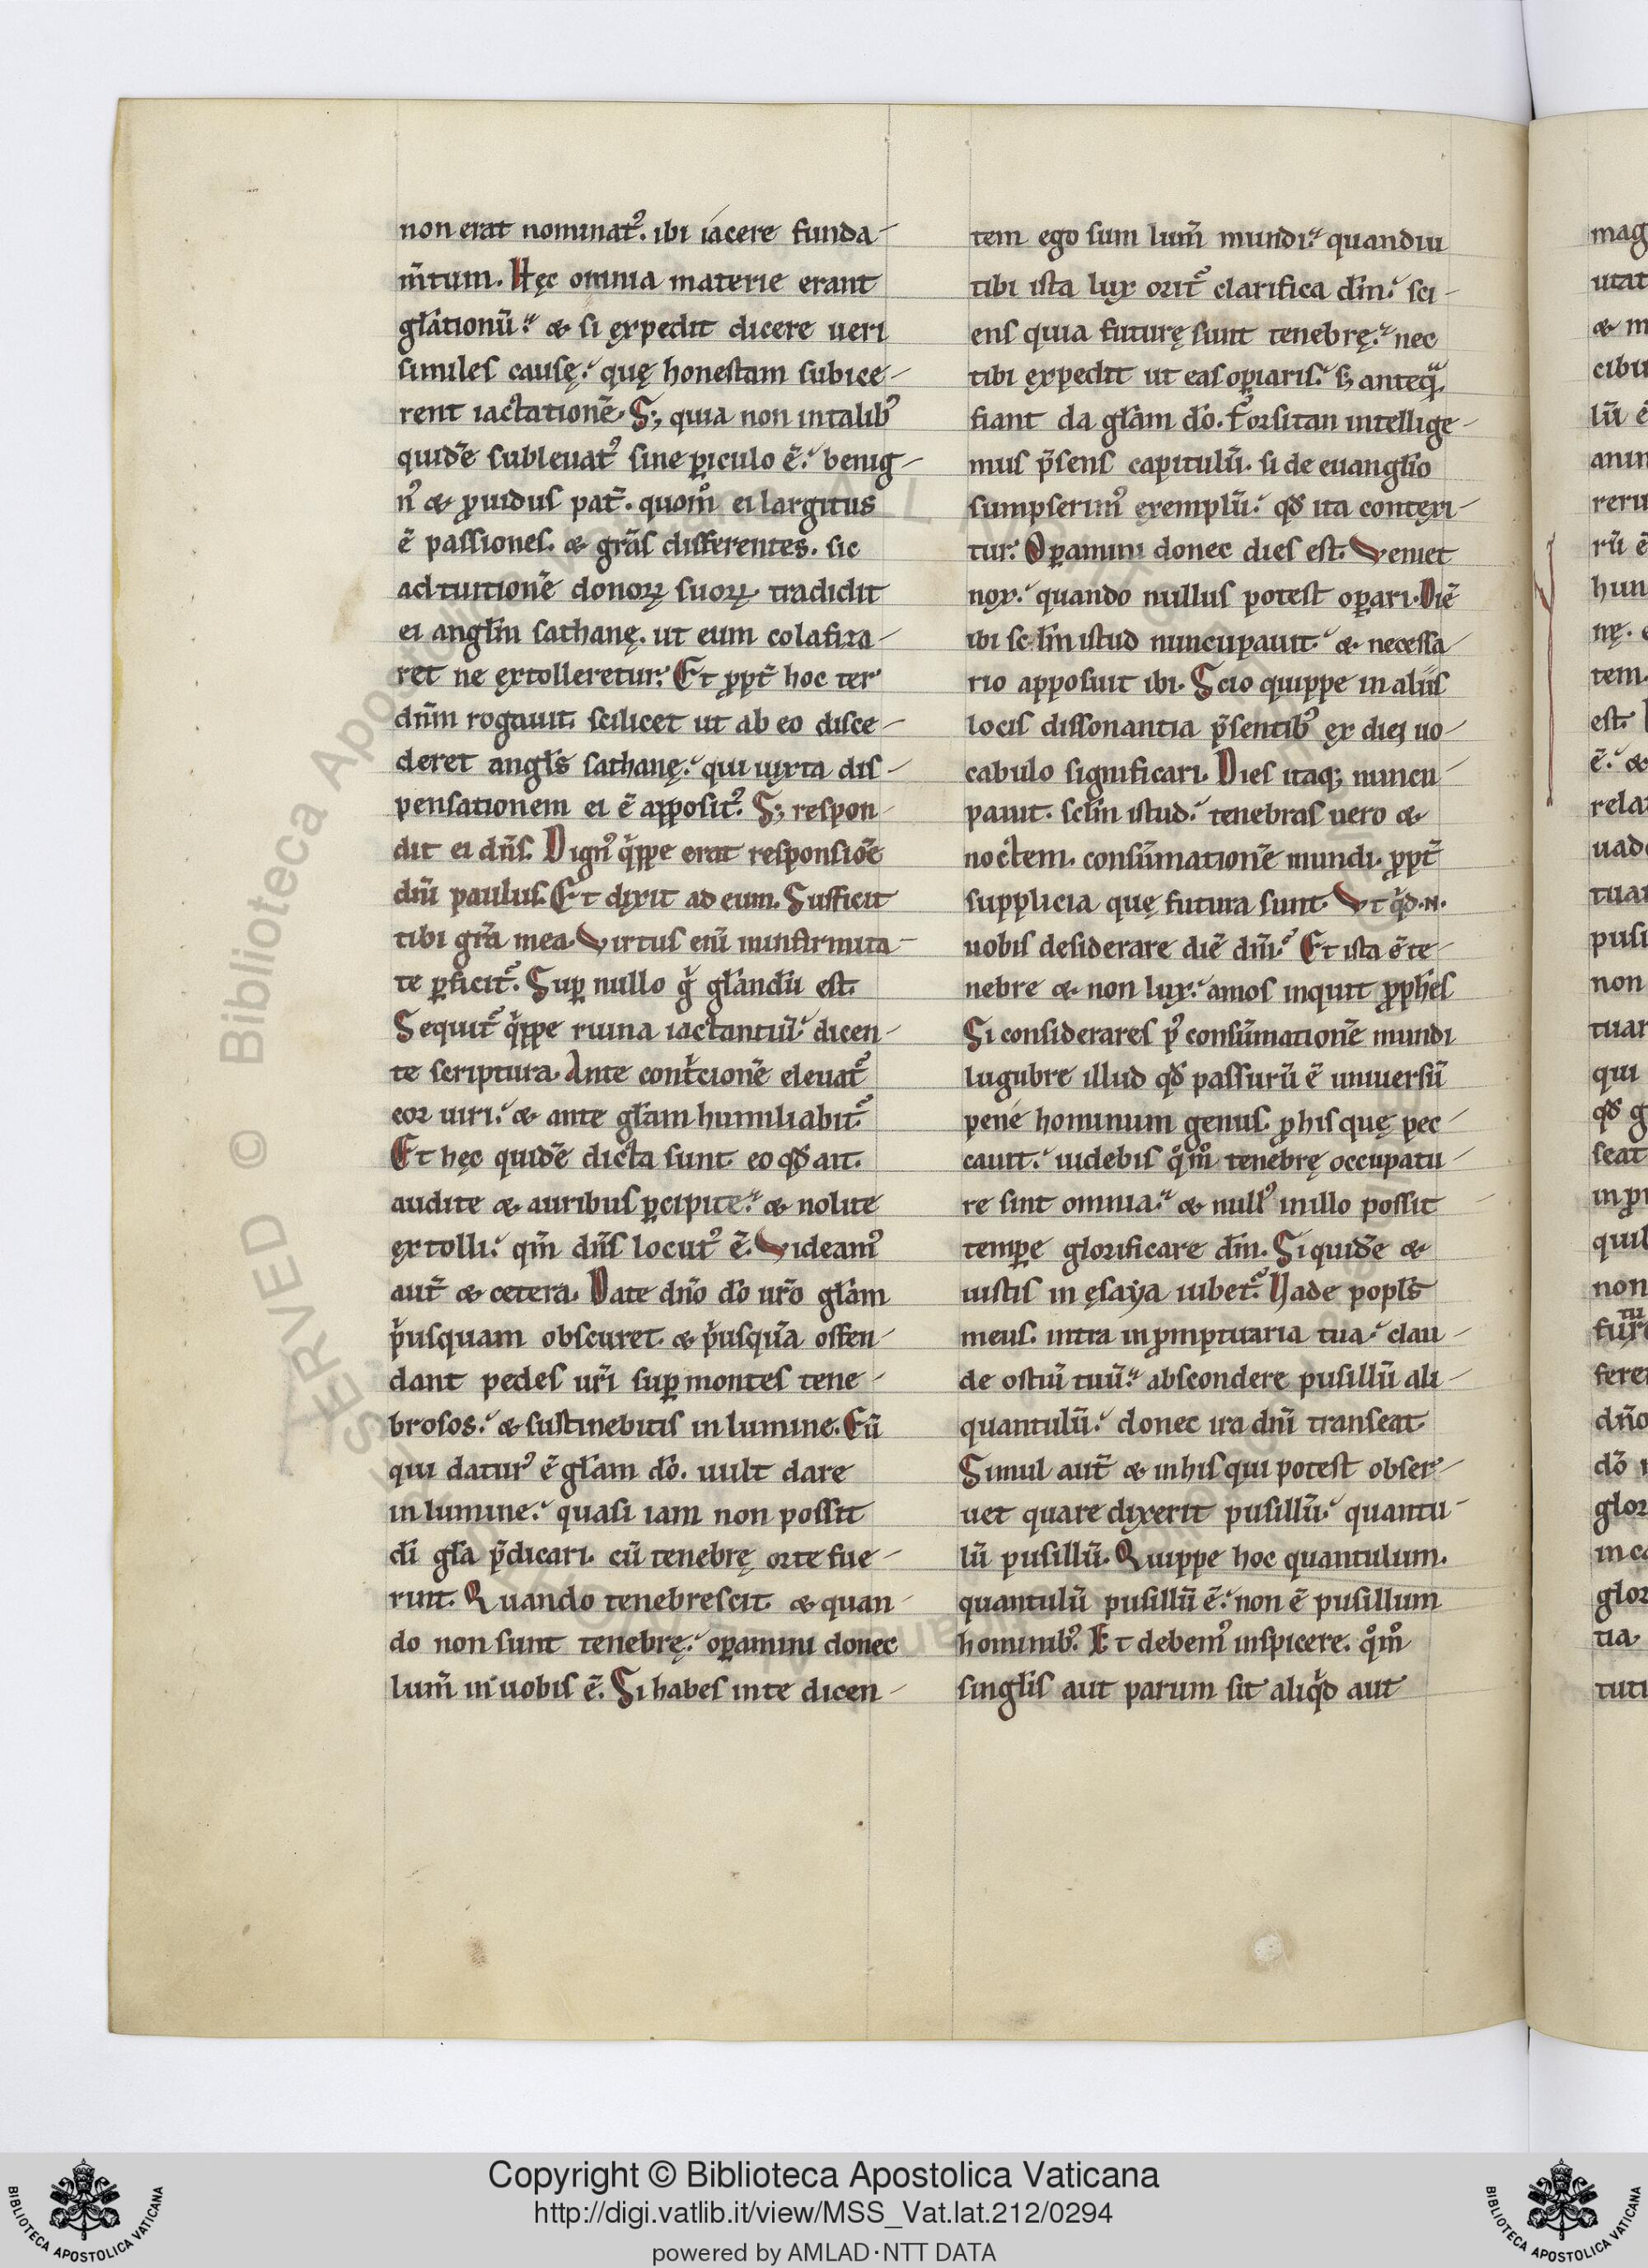 non erat nominat᷒. ibi iacere funda-
m̄tum. Hęc omnia materie erant
gl̄ationū. & si ęxpedit dicere ueri
similes causę. quę honestam subice-
rent iactationē. S; quia non in talib᷒
quidē subleuat᷒ sine ꝑiculo ē. benig-
n᷒ & ꝓuidus pat̄. quom̊ ei largitus
ē passiones. & gr̄as differentes. sic
ad tuitionē donoꝝ suoꝝ tradidit
ei angl̄m sathanę. ut eum colafiza-
ret ne ęxtolleretur. Et ꝓpt̄ hoc ter
dn̄m rogauit. scilicet ut ab eo disce-
deret angl̄s sathanę. qui iuxta dis-
pensationem ei ē apposit᷒. S; respon-
dit ei dn̄s. Dign᷒ qͥppe erat responsiōe
dn̄i paulus. Et dixit ad eum. Sufficit
tibi gr̄a mea. Virtus eni̅ in infirmita-
te ꝑficit᷒. Suꝑ nullo gͥ gl̄andū est.
Sequit᷒ qͥppe ruina iactantiū. dicen-
te scriptura. Ante contͥcionē eleuat᷒
cor uiri. & ante gl̄am humiliabit᷒
Et hęc quidē dicta sunt eo qd̄ ait.
audite & auribus ꝑcipite. & nolite
ęxtolli. qm̄ dn̄s locut᷒ ē. Videam᷒
aut̄ & cetera. Date dn̄o dō ur̄o gl̄am
pͥusquam obscuret. & pͥusqūa offen-
dant pedes ur̄i suꝑ montes tene-
brosos. & sustinebitis in lumine. Eū
qui datur᷒ ē gl̄am dō. uult dare
in lumine. quasi iam non possit
dī gl̄a p̄dicari. cū tenebrę orte fue-
runt. Quando tenebrescit & quan-
do non sunt tenebrę. oꝑamini donec
lum̄ in uobis ē. Si habes in te dicen-
tem ego sum lum̄ mundi. quandiu
tibi ista lux orit᷒ clarifica dm̄. sci-
ens quia futurę sunt tenebrę. nec
tibi ęxpedit ut eas oꝑiaris. s; anteqͣ.
fiant da gl̄am dō. Forsitan intellige-
mus p̄sens capitulū. si de euangl̄io
sumpserim᷒ exemplū. qd̄ ita contexi-
tur. Oꝑamini donec dies est. Veniet
nox. quando nullus potest oꝑari. Diē
ibi sclm̄ istud nuncupauit. & necessa-
rio apposuit ibi. Scio quippe in aliis
locis dissonantia p̄sentib᷒ ex diei uo-
cabulo significari. Dies itaq; nuncu-
pauit. sclm̄ istud. tenebras uero &
noctem. consūmationē mundi. ꝓpt̄
supplicia quę futura sunt. Vt qͥd .N.
uobis desiderare diē dn̄i. Et ista ē te-
nebre & non lux. amos inquit ꝓphes
Si considerares p᷒ consūmationē mundi
lugubre illud qd̄ passurū ē uniuersū
pene hominum genus. ꝓ his quę pec-
cauit. uidebis qͦm̊ tenebrę occupatu-
re sint omnia. & null᷒ in illo possit
temꝑe glorificare dm̄. Si quidē &
iustis in ęsaya iubet᷒. Uade popl̄s
meus. intra in ꝓmptuaria tua. clau-
de ostiū tuū. abscondere pusillū ali-
quantulū. donec ira dn̄i transeat.
Simul aut̄ & in his qui potest obser-
uet quare dixerit pusillū. quantu-
lū pusillū. Quippe hoc quantulum.
quantulū pusillū ē. non ē pusillum
hominib᷒. Et debem᷒ inspicere. qͦm̊
singl̄is aut parum sit aliqͥd aut
Copyright © Biblioteca Apostolica Vaticana
http://digi.vatlib.it/view/MSS_Vat.lat.212/0294
powered by AMLAD·NTT DATA